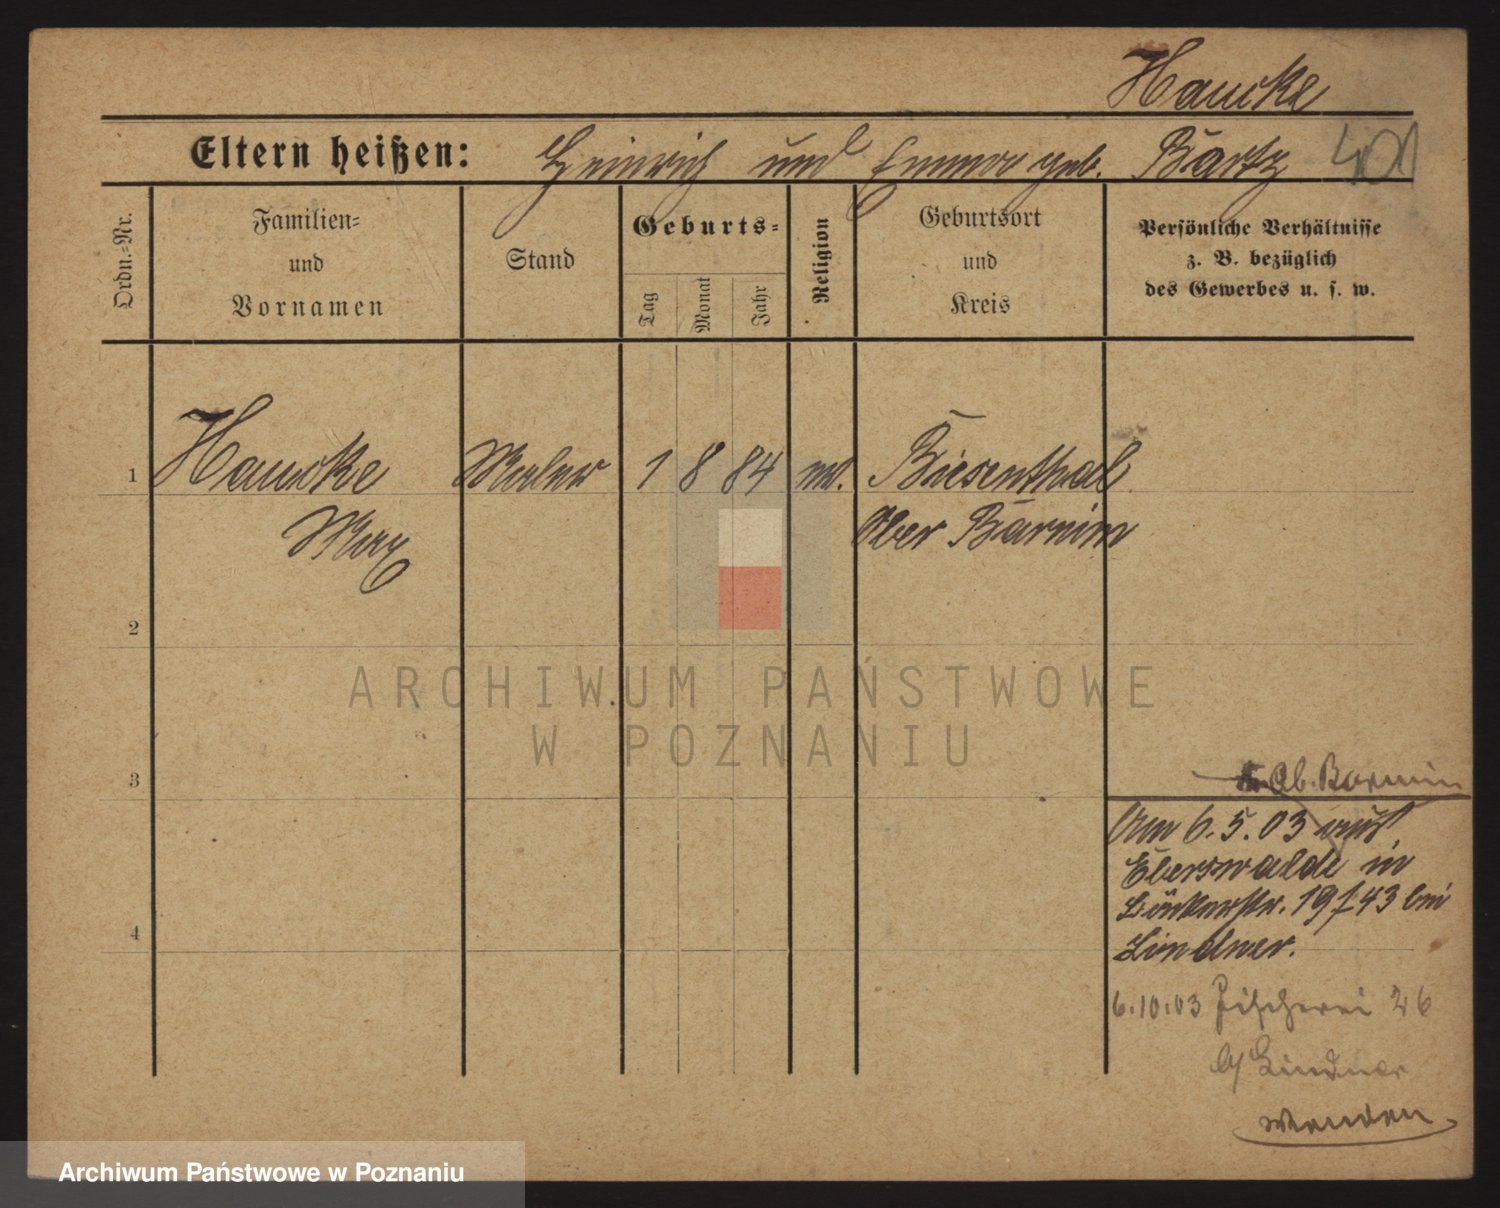 Haucke
Eltern heißen: Heinrich und Emma geb. Bartz 401
Ordn.=Nr.
Familien=
und
Vornamen
Stand
Geburts=
Tag
Monat
Jahr
Religion
Geburtsort
und
Kreis
Persönliche Verhältnisse
z. B. bezüglich
des Gewerbes u. s. w.
1 Haucke Maler 1 8 84 ev. Biesenthal
Max Ober Barnim
2
3
4
Ob. Barnim
Am 6.5.03 aus
Eberswalde in
19/43 bei
Lindner.
6.10.03 Fischerei 26
b/ Lindner
wenden
ARCHIWUM PAŃSTWOWE
W POZNANIU
Archiwum Państwowe w Poznaniu